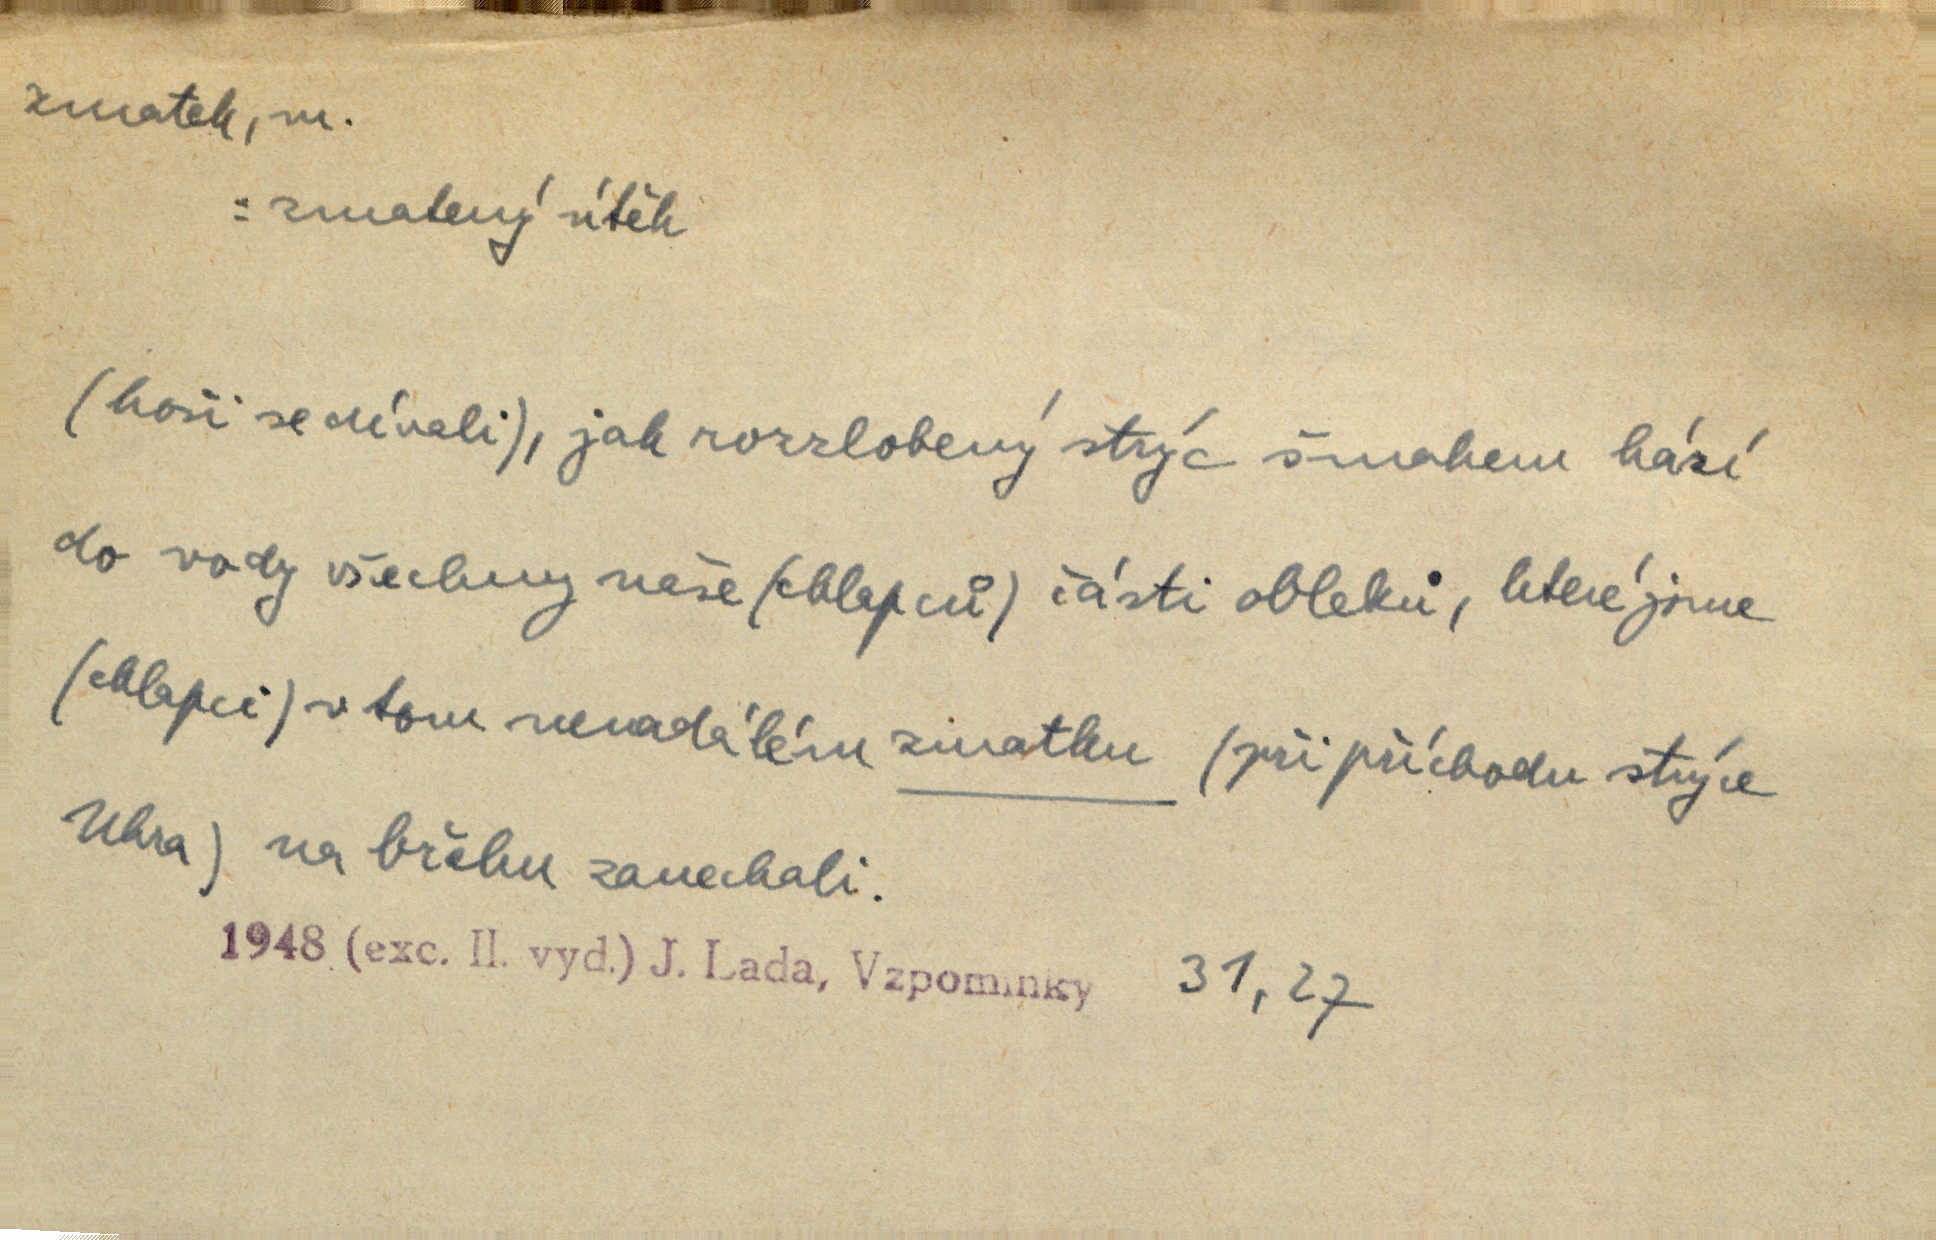 zmatek, m.
= zmatený útěk
(hoši se dívali), jak rozzlobený strýc šmahem hází
do vody všechny naše (chlapců) části obleků, které jsme
(chlapci) v tom nenadálém zmatku (při příchodu strýce
Uhra) na břehu zanechali.
1948 (exc. II. vyd.) J. Lada, Vzpomínky 31, 27